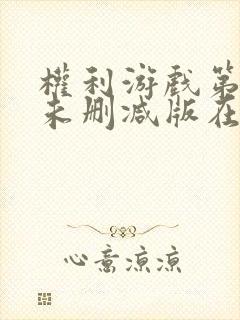 權利游戲第
未删减版在
心意凉凉